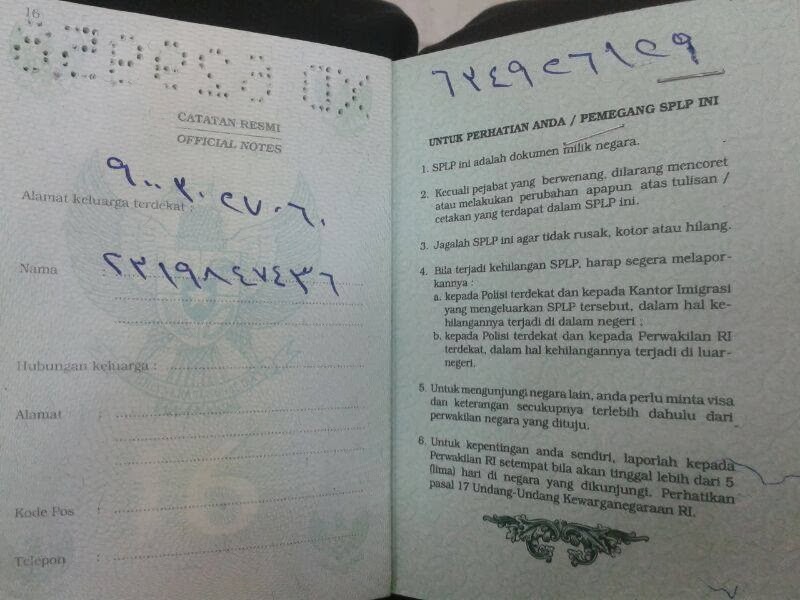 16
CATATAN RESMI
OFFICIAL NOTES
Alamat keluarga terdekat :
Nama :
Hubungan keluarga :
Alamat :
Kode Pos :
Telepon :
UNTUK PERHATIAN ANDA / PEMEGANG SPLP INI
1. SPLP ini adalah dokumen milik negara.
2. Kecuali pejabat yang berwenang, dilarang mencoret
atau melakukan perubahan apapun atas tulisan /
cetakan yang terdapat dalam SPLP ini.
3. Jagalah SPLP ini agar tidak rusak, kotor atau hilang.
4. Bila terjadi kehilangan SPLP, harap segera melapor-
kannya :
a. kepada Polisi terdekat dan kepada Kantor Imigrasi
yang mengeluarkan SPLP tersebut, dalam hal ke-
hilangannya terjadi di dalam negeri ;
b. kepada Polisi terdekat dan kepada Perwakilan RI
terdekat, dalam hal kehilangannya terjadi di luar-
negeri.
5. Untuk mengunjungi negara lain, anda perlu minta visa
dan keterangan secukupnya terlebih dahulu dari
perwakilan negara yang dituju.
6. Untuk kepentingan anda sendiri, laporlah kepada
Perwakilan RI setempat bila akan tinggal lebih dari 5
(lima) hari di negara yang dikunjungi. Perhatikan
pasal 17 Undang-Undang Kewarganegaraan RI.